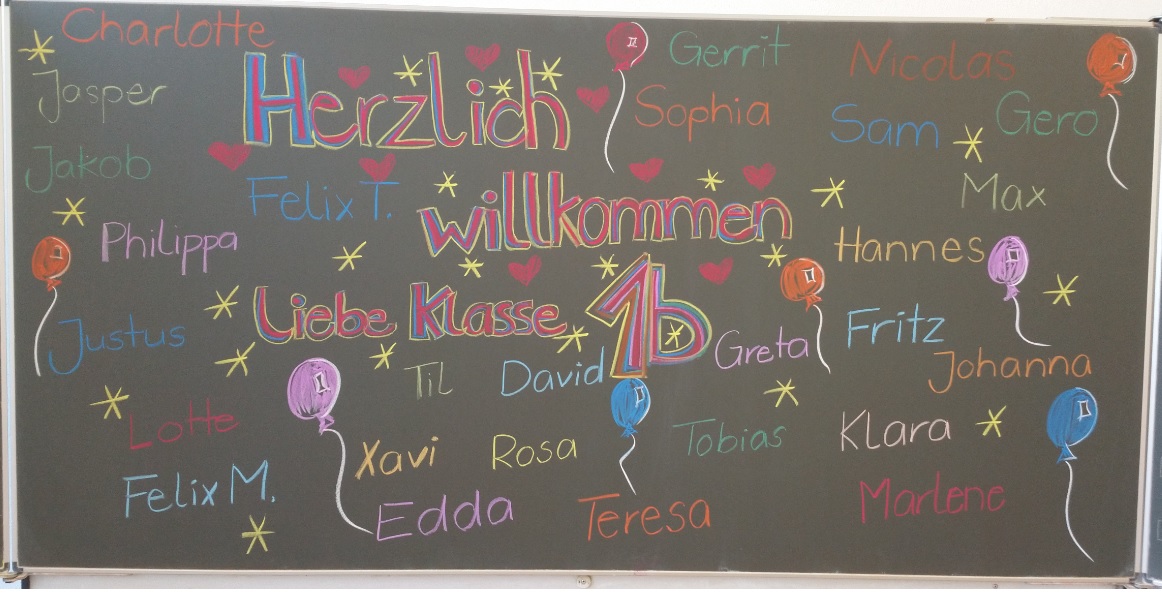 Charlotte
Gerrit
Nicolas
Jasper
Herzlich
Sophia
Sam
Gero
Jakob
Felix T.
willkommen
Max
Philippa
Hannes
Justus
Liebe Klasse 1b
Greta
Fritz
Til
David
Johanna
Lotte
Xavi
Rosa
Tobias
Klara
Felix M.
Edda
Teresa
Marlene